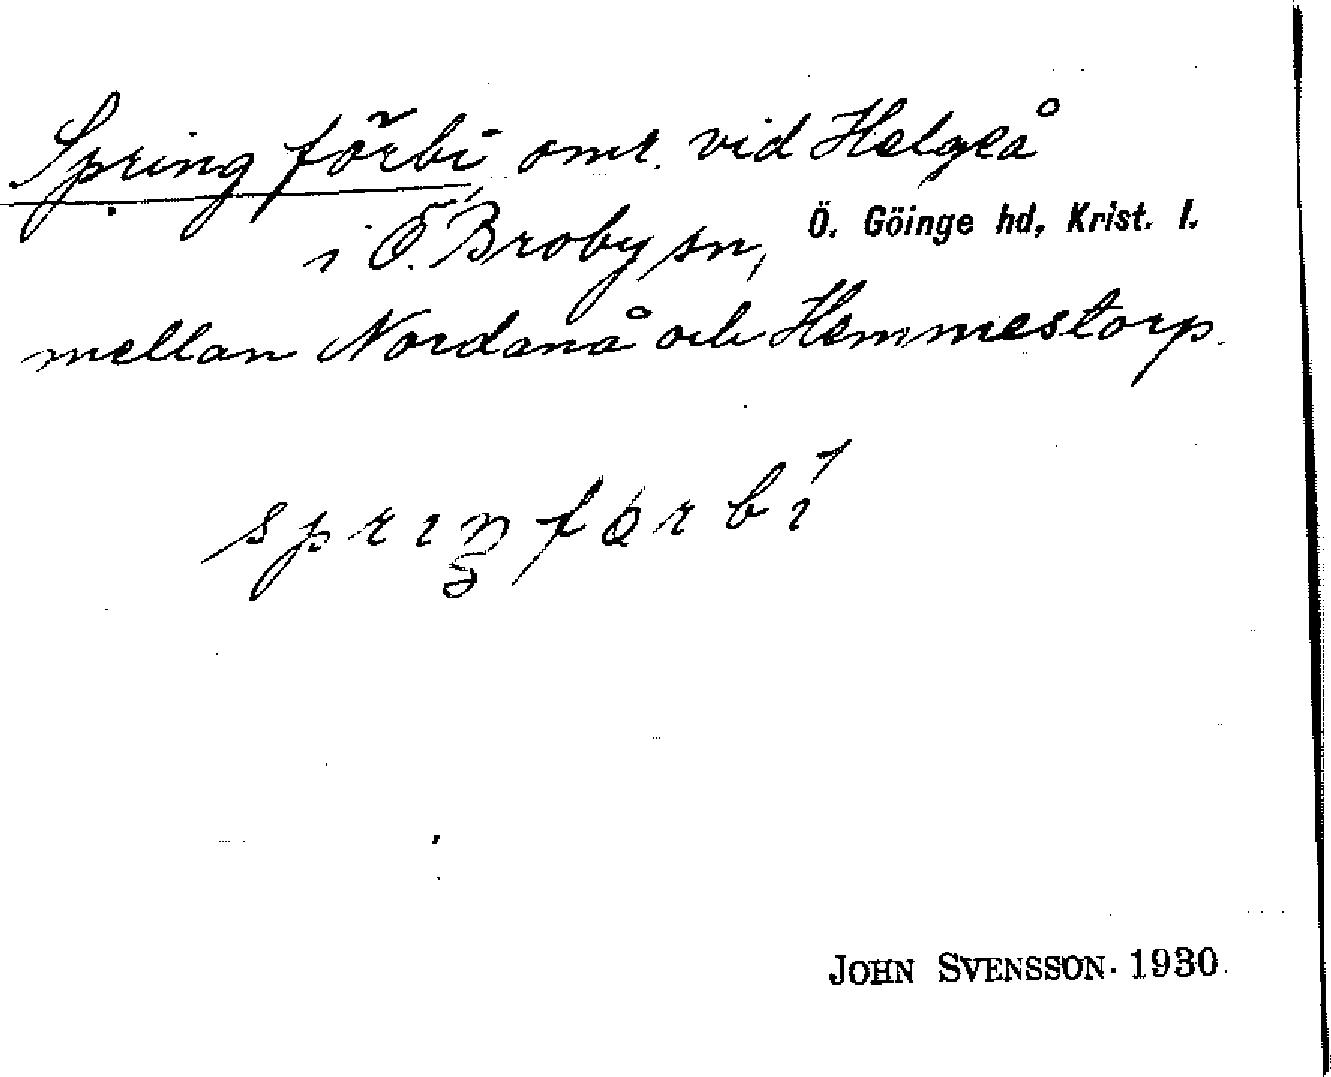 Spring förbi omr. vid Helgeå
i Ö. Broby sn, Ö. Göinge hd, Krist. l.
mellan Nordanå och Hemmestorp.
JOHN SVENSSON. 1930.